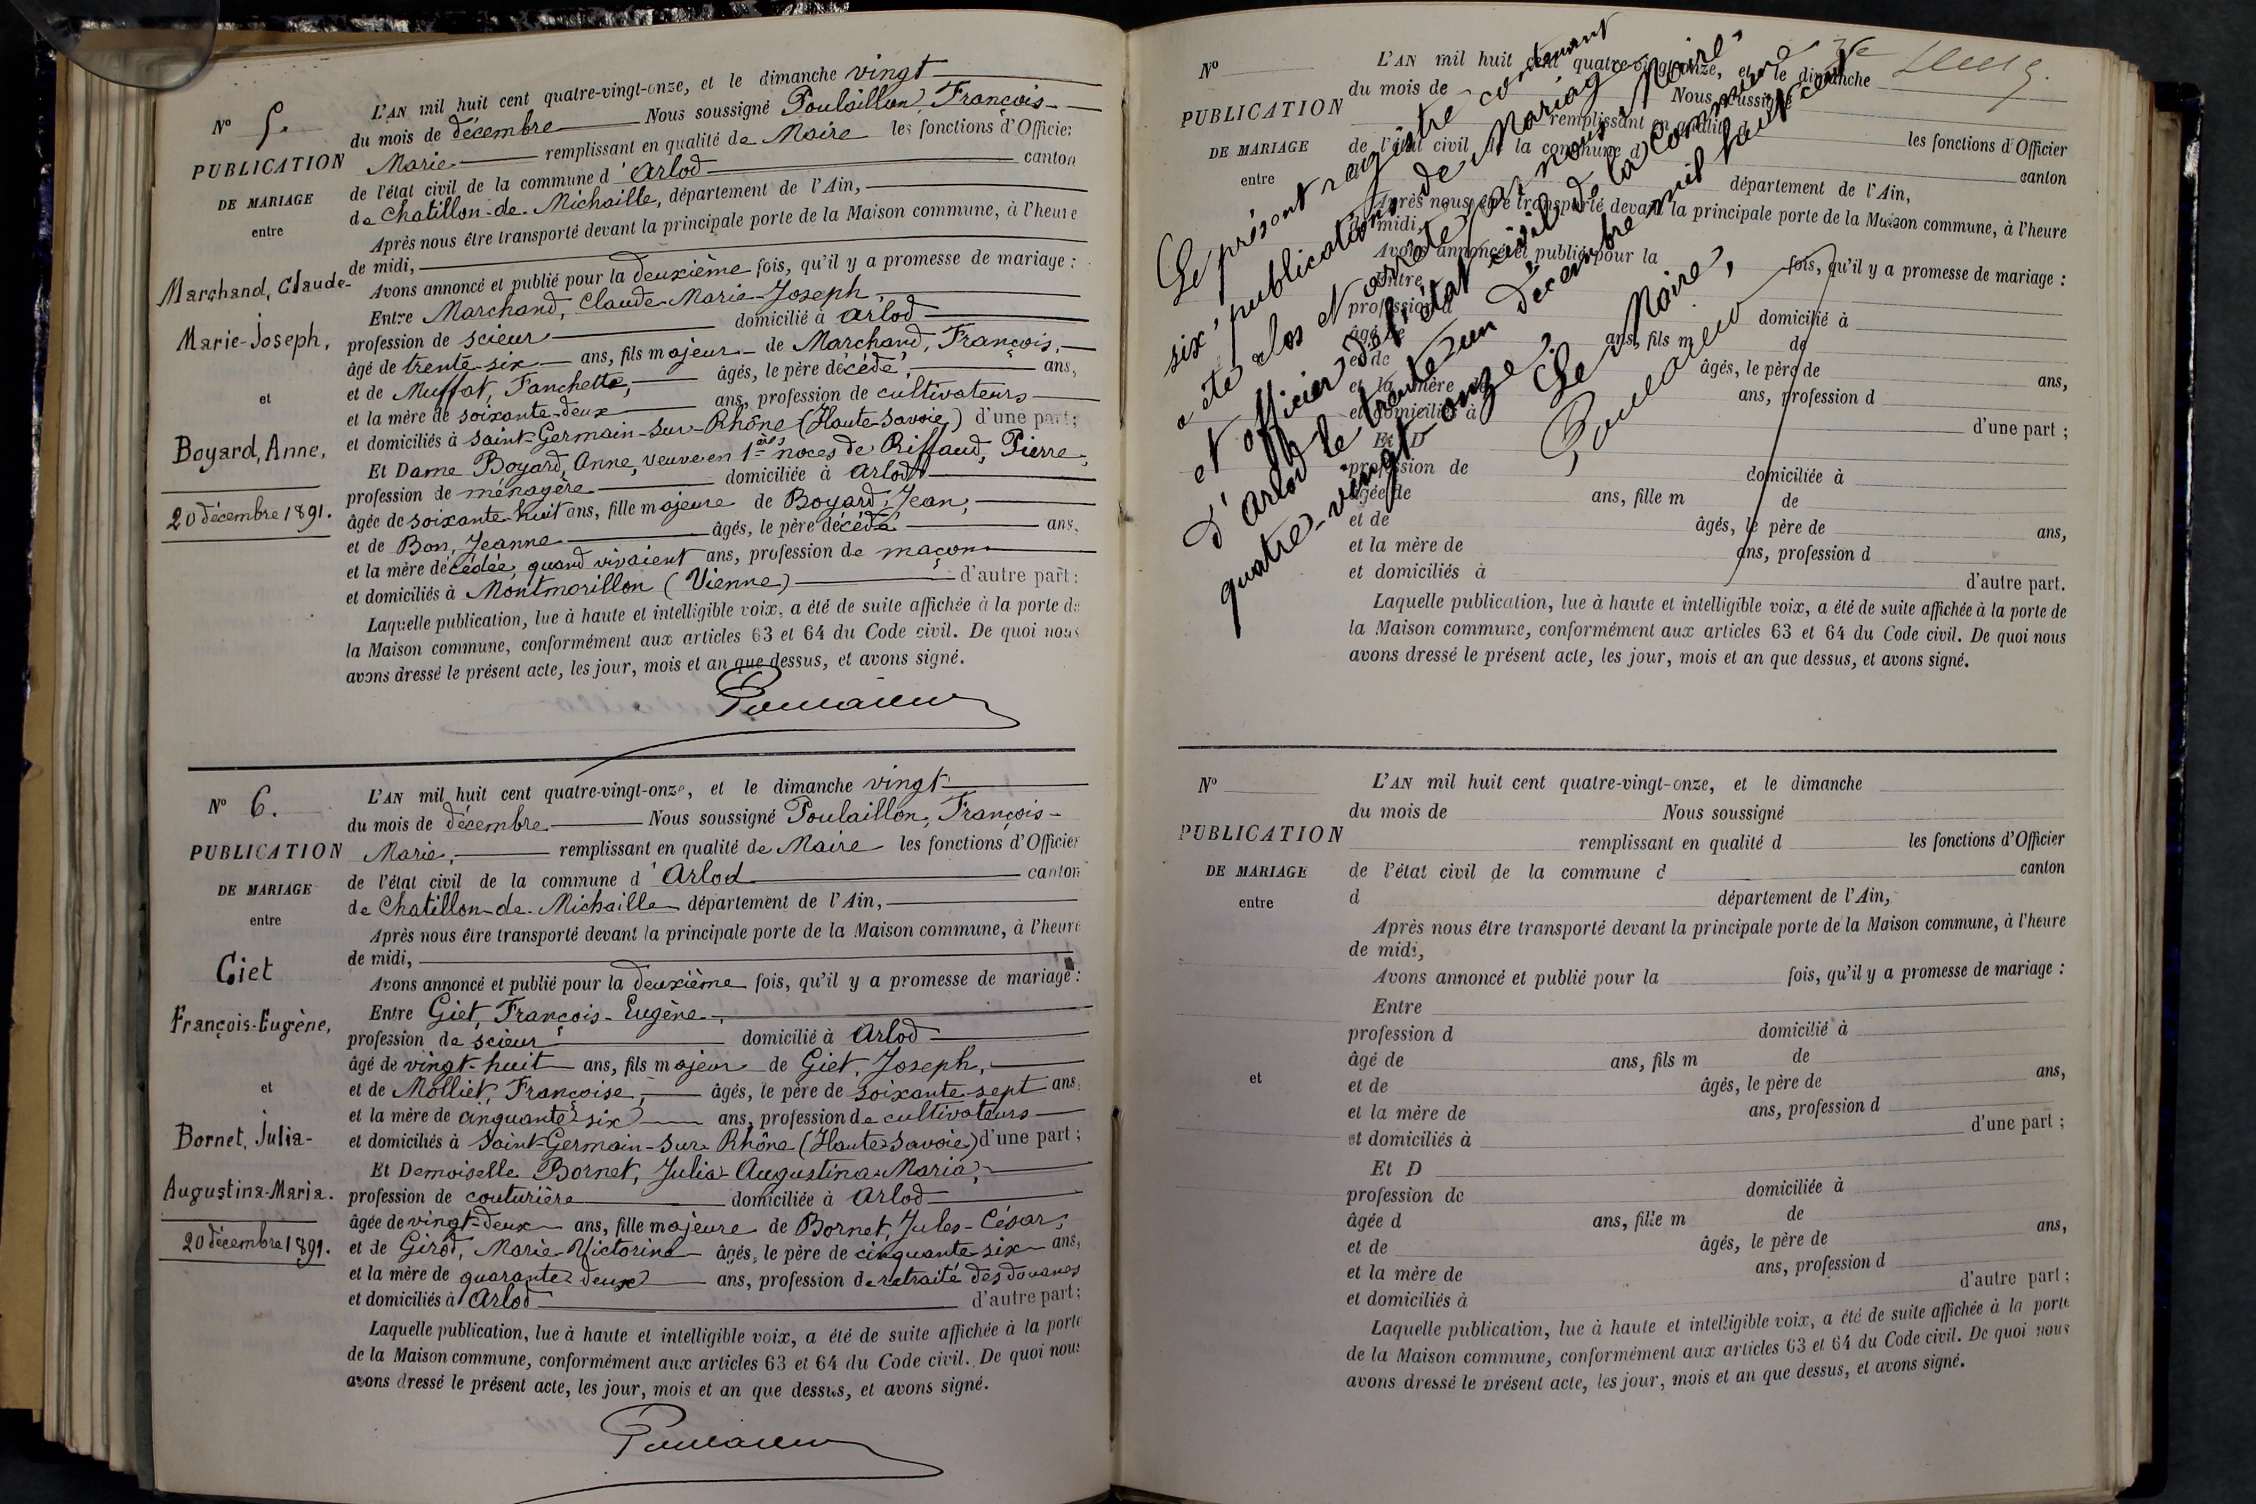 N° 5.
PUBLICATION
DE MARIAGE
entre
Marchand, Claude-
Marie-Joseph,
et
Boyard, Anne,
20 décembre 1891.
L'AN mil huit cent quatre-vingt-onze, et le dimanche vingt
du mois de décembre Nous soussigné Poulaillon, François-
Marie remplissant en qualité de Maire les fonctions d'Officier
de l'état civil de la commune d'Arlod canton
de Chatillon-de-Michaille, département de l'Ain,
Après nous être transporté devant la principale porte de la Maison commune, à l'heure
de midi,
Avons annoncé et publié pour la deuxième fois, qu'il y a promesse de mariage :
Entre Marchand, Claude-Marie-Joseph,
profession de scieur domicilié à Arlod
âgé de trente-six ans, fils majeur de Marchand, François,
et de Muffat, Fanchette, âgés, le père décédé, ans,
et la mère de soixante-deux ans, profession de cultivateurs
et domiciliés à Saint-Germain-sur-Rhône (Haute-Savoie) d'une part ;
Et Dame Boyard, Anne, veuve en 1ères noces de Riffaud, Pierre,
profession de ménagère domiciliée à Arlod
âgée de soixante-huit ans, fille majeure de Boyard, Jean,
et de Bon, Jeanne âgés, le père décédé ans,
et la mère décédée, quand vivaient ans, profession de maçon
et domiciliés à Montmorillon (Vienne) d'autre part :
Laquelle publication, lue à haute et intelligible voix, a été de suite affichée à la porte de
la Maison commune, conformément aux articles 63 et 64 du Code civil. De quoi nous
avons dressé le présent acte, les jour, mois et an que dessus, et avons signé.
N° 6.
PUBLICATION
DE MARIAGE
entre
Giet
François-Eugène,
et
Bornet, Julia-
Augustina-Maria.
20 décembre 1891.
L'AN mil huit cent quatre-vingt-onze, et le dimanche vingt
du mois de décembre Nous soussigné Poulaillon, François-
Marie, remplissant en qualité de Maire les fonctions d'Officier
de l'état civil de la commune d'Arlod canton
de Chatillon-de-Michaille département de l'Ain,
Après nous être transporté devant la principale porte de la Maison commune, à l'heure
de midi,
Avons annoncé et publié pour la deuxième fois, qu'il y a promesse de mariage :
Entre Giet, François-Eugène,
profession de scieur domicilié à Arlod
âgé de vingt-huit ans, fils majeur de Giet, Joseph,
et de Molliet, Françoise, âgés, le père de soixante-sept ans,
et la mère de cinquante-six ans, profession de cultivateurs
et domiciliés à Saint-Germain-sur-Rhône (Haute-Savoie) d'une part ;
Et Demoiselle Bornet, Julia-Augustina-Maria,
profession de couturière domiciliée à Arlod
âgée de vingt-deux ans, fille majeure de Bornet, Jules-César,
et de Girod, Marie-Victorine âgés, le père de cinquante-six ans,
et la mère de quarante-deux ans, profession de retraité des douanes
et domiciliés à Arlod d'autre part :
Laquelle publication, lue à haute et intelligible voix, a été de suite affichée à la porte
de la Maison commune, conformément aux articles 63 et 64 du Code civil. De quoi nous
avons dressé le présent acte, les jour, mois et an que dessus, et avons signé.
N°
PUBLICATION
DE MARIAGE
entre
L'AN mil huit cent quatre-vingt-onze, et le dimanche
du mois de Nous soussigné
remplissant en qualité d les fonctions d'Officier
de l'état civil de la commune d canton
département de l'Ain,
Après nous être transporté devant la principale porte de la Maison commune, à l'heure
de midi,
Avons annoncé et publié pour la fois, qu'il y a promesse de mariage :
Entre
profession d domicilié à
âgé de ans, fils m de
et de âgés, le père de ans,
et la mère de ans, profession d
et domiciliés à d'une part ;
Et D
profession de domiciliée à
âgée de ans, fille m de
et de âgés, le père de ans,
et la mère de ans, profession d
et domiciliés à d'autre part.
Laquelle publication, lue à haute et intelligible voix, a été de suite affichée à la porte de
la Maison commune, conformément aux articles 63 et 64 du Code civil. De quoi nous
avons dressé le présent acte, les jour, mois et an que dessus, et avons signé.
Le présent registre contenant
six publications de Mariage
a été clos et arrêté par nous, Maire
et officier de l'état civil de la commune
d'Arlod le trente-un décembre mil huit cent
quatre-vingt-onze. Le Maire,
N°
PUBLICATION
DE MARIAGE
entre
et
L'AN mil huit cent quatre-vingt-onze, et le dimanche
du mois de Nous soussigné
remplissant en qualité d les fonctions d'Officier
de l'état civil de la commune d canton
d département de l'Ain,
Après nous être transporté devant la principale porte de la Maison commune, à l'heure
de midi,
Avons annoncé et publié pour la fois, qu'il y a promesse de mariage :
Entre
profession d domicilié à
âgé de ans, fils m de
et de âgés, le père de ans,
et la mère de ans, profession d
et domiciliés à d'une part ;
Et D
profession de domiciliée à
âgée d ans, fille m de
et de âgés, le père de ans,
et la mère de ans, profession d
et domiciliés à d'autre part ;
Laquelle publication, lue à haute et intelligible voix, a été de suite affichée à la porte
de la Maison commune, conformément aux articles 63 et 64 du Code civil. De quoi nous
avons dressé le présent acte, les jour, mois et an que dessus, et avons signé.